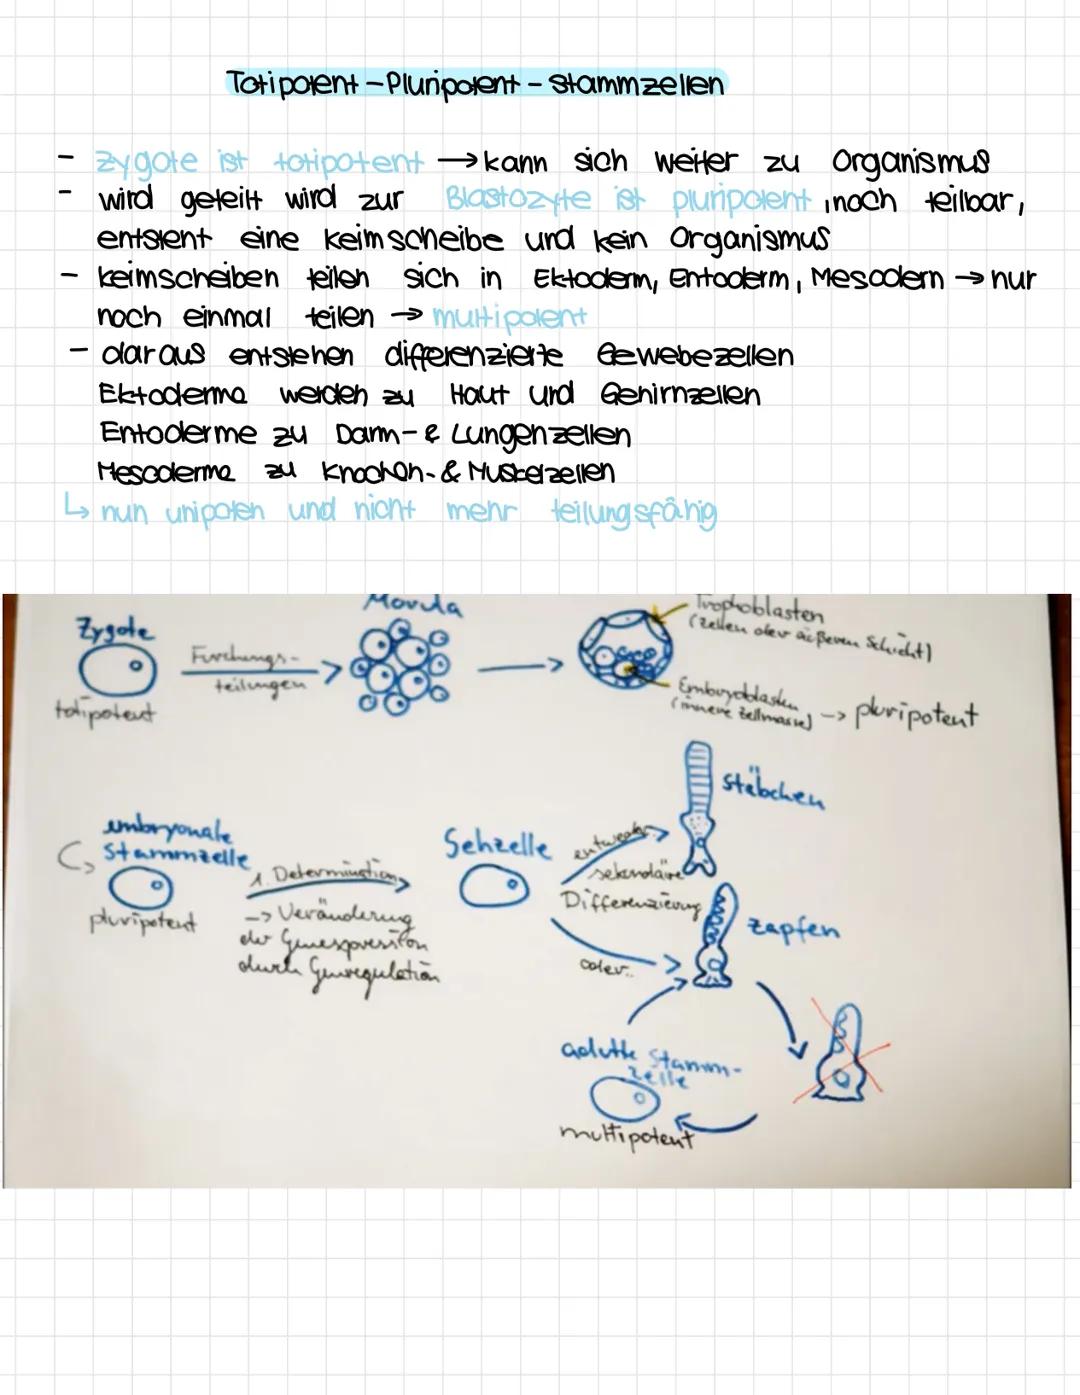 Totipotent - Pluripotent - Stammzellen
- Zygote ist totipotent → kann sich weiter zu Organismus
- wird geteilt wird zur Blastozyte ist pluripotent, noch teilbar,
entsteht eine Keimscheibe und kein Organismus
- Keimscheiben teilen sich in Ektoderm, Entoderm, Mesodern → nur
noch einmal teilen → multipotent
- daraus entstehen differenzierte Gewebezellen
Ektoderme werden zu Haut und Gehirnzellen
Entoderme zu Darm- & Lungenzellen
Mesoderme zu Knochen- & Muskelzellen
↳ nun unipoten und nicht mehr teilungsfähig
Zygote
totipotent
Furchungs-
teilungen
Morula
Trophoblasten
(Zellen der äußeren Schicht)
Embryoblasten
(innere Zellmasse) -> pluripotent
embryonale
Stammzelle
pluripotent
1. Determination
-> Veränderung
der Genexpression
durch Genregulation
Sehzelle
entweder..
sekundäre
Differenzierung
oder..
Stäbchen
Zapfen
adulte Stamm-
zelle
multipotent